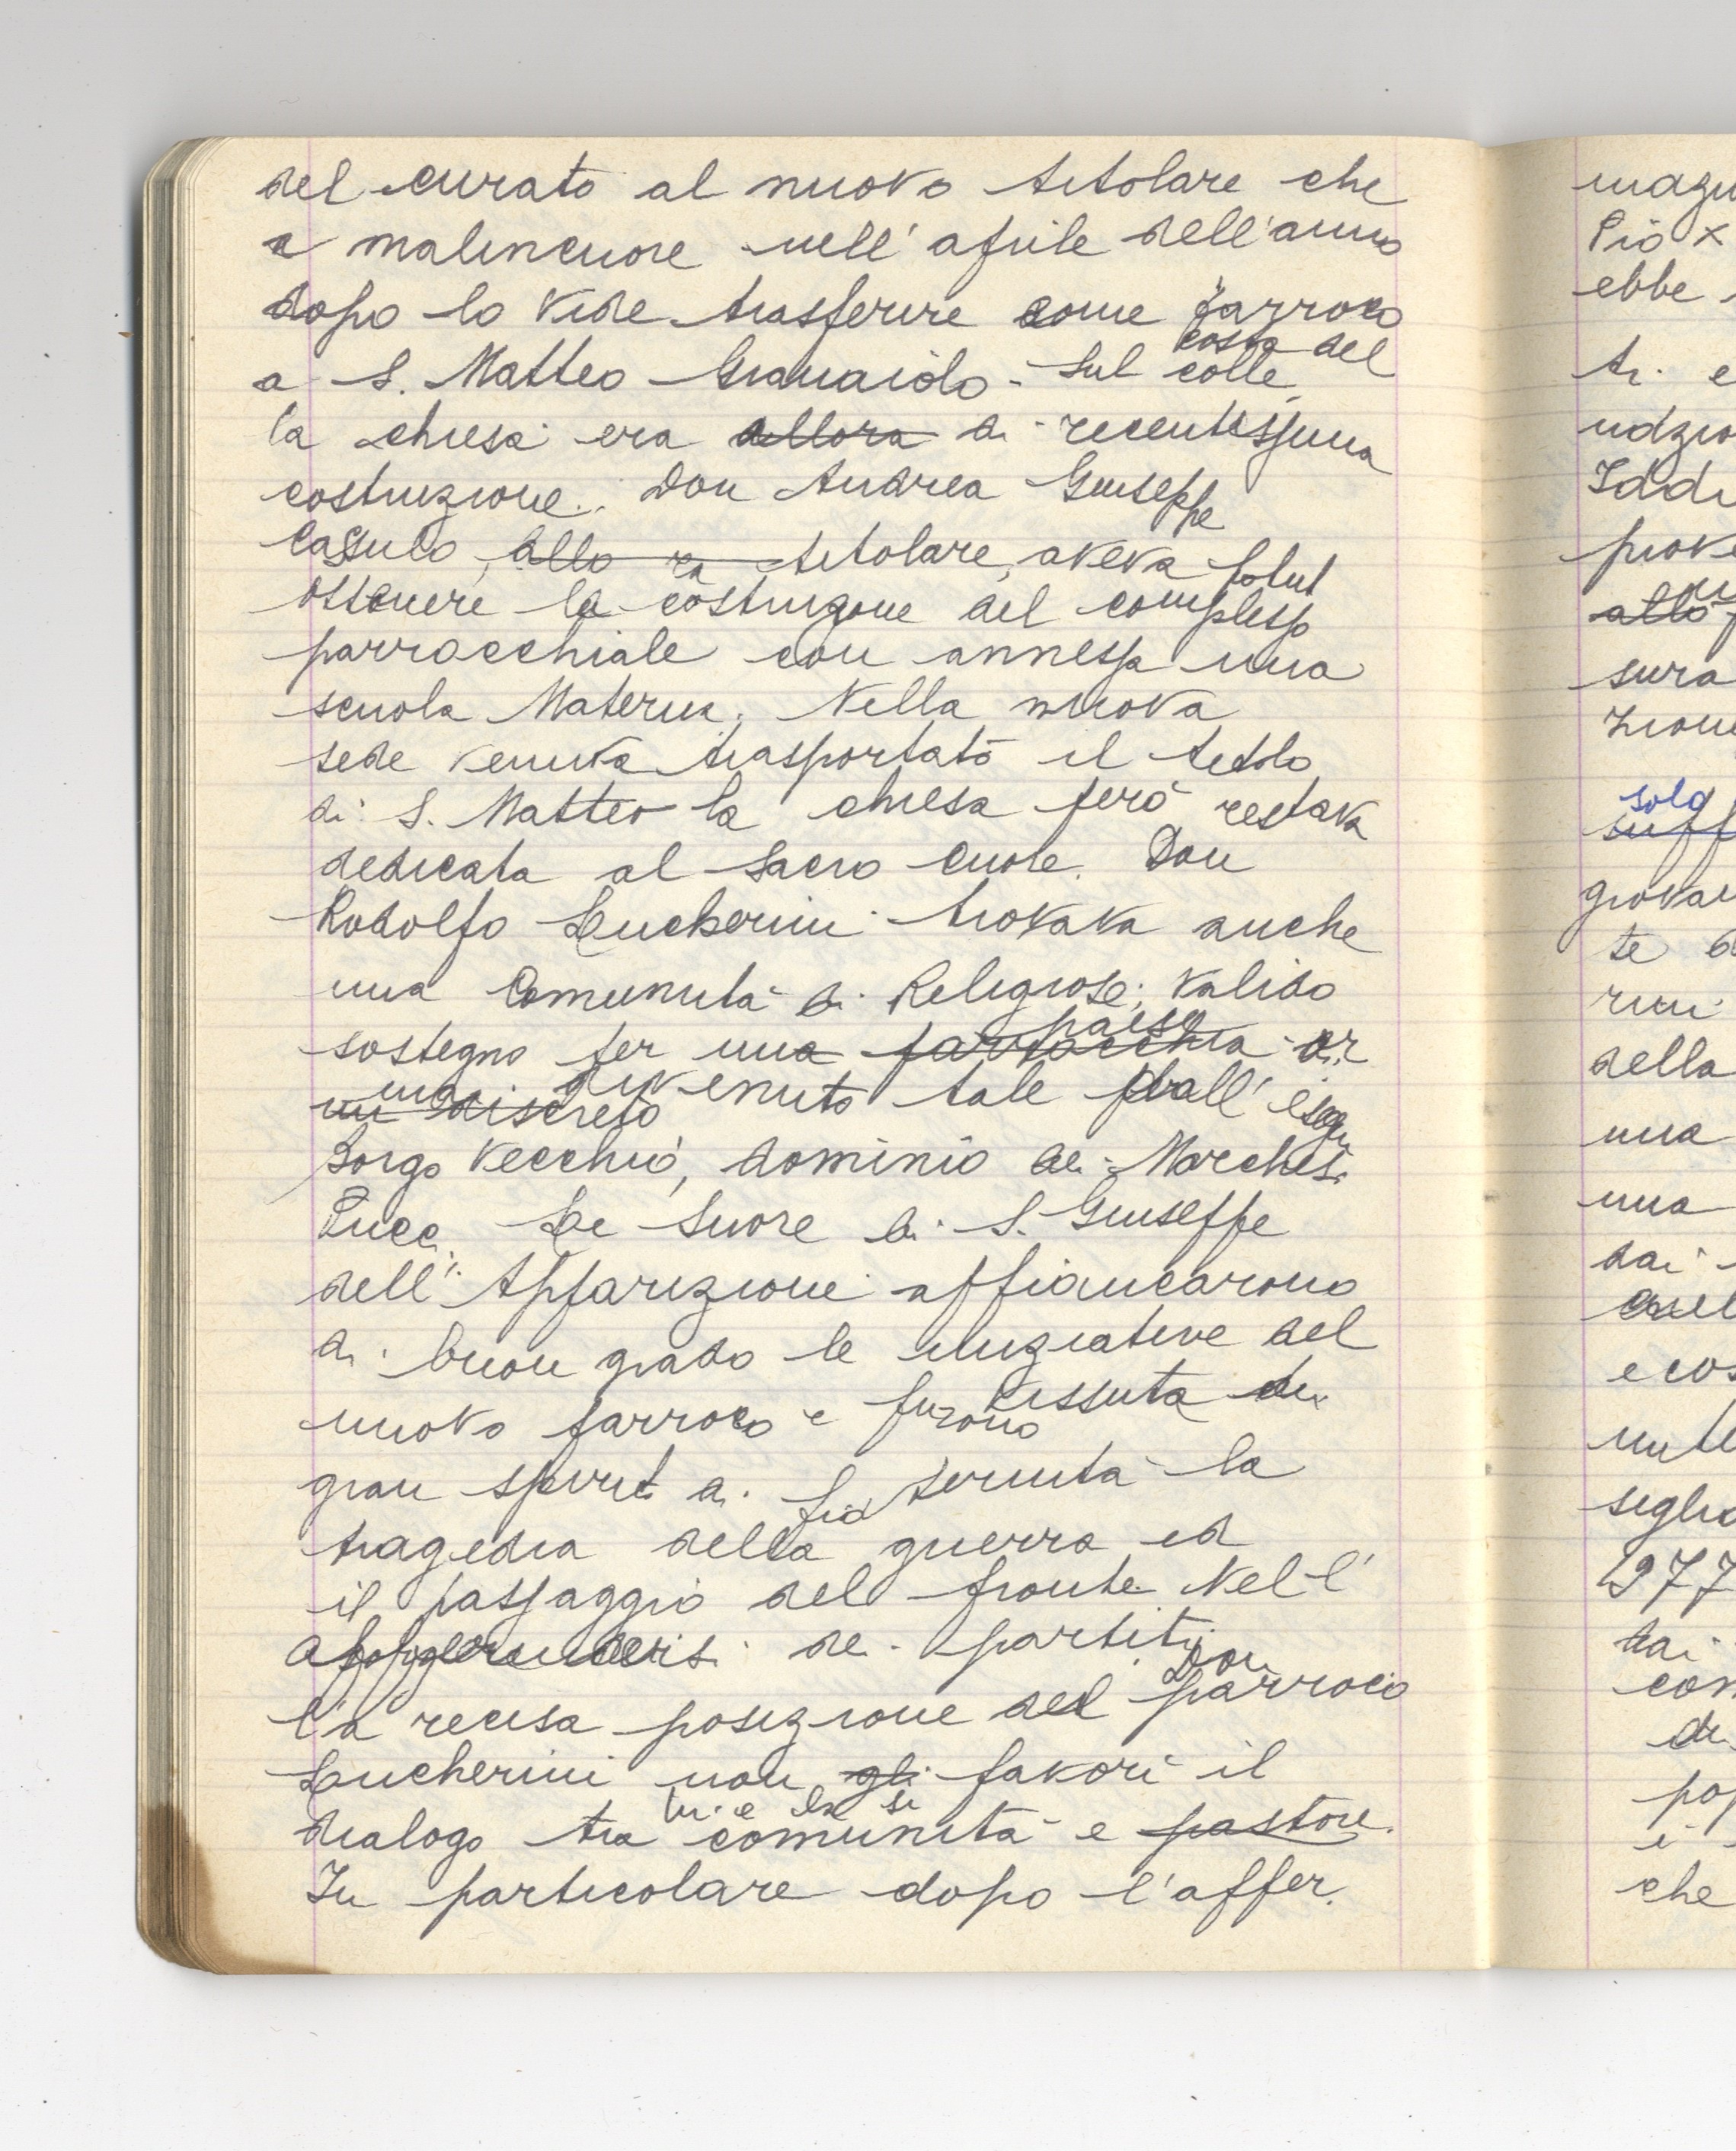 del curato al nuovo titolare che
a malincuore nell'aprile dell'anno
dopo lo vide trasferire come parroco
a S. Matteo Granaiolo - Sul colle
costa del
la chiesa era allora di recentissima
costruzione. Don Andrea Giuseppe
allora titolare, aveva potut
ottenere la costruzione del complesso
parrocchiale con annessa una
scuola Materna. Nella nuova
sede veniva trasportato il titolo
di S. Matteo la chiesa però restava
dedicata al Sacro Cuore. Don
Rodolfo Lucherini trovava anche
una Comunità di Religiose; valido
paese
sostegno per una parrocchia or
mai divenuto tale dall'esiguo
un discreto
Borgo Vecchio, dominio dei Marchesi
Pucci. Le Suore di S. Giuseppe
dell'Apparizione affiancarono
di buon grado le iniziative del
nuovo parroco e furono vissuta di
gran spirit di fraternità la
tragedia della guerra ed
il passaggio del fronte. Nell'
dei partiti
Don
la recisa posizione del parroco
Lucherini non gli favorì il
dialogo tra comunità e pastore.
In particolare dopo l'affer.
magn
Pio X
ebbe
sura
zione
solo
giovan
te
rini
della
una
una
dai
e cos
siglio
977
dai
con
di
pop
che